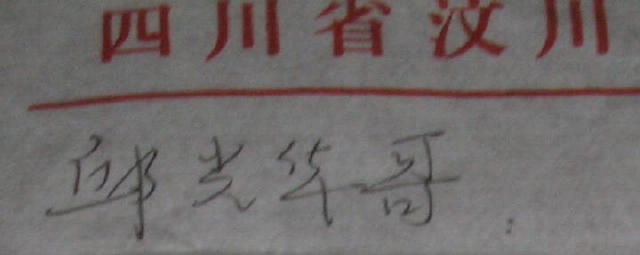 四川省汶川
邱光华哥：